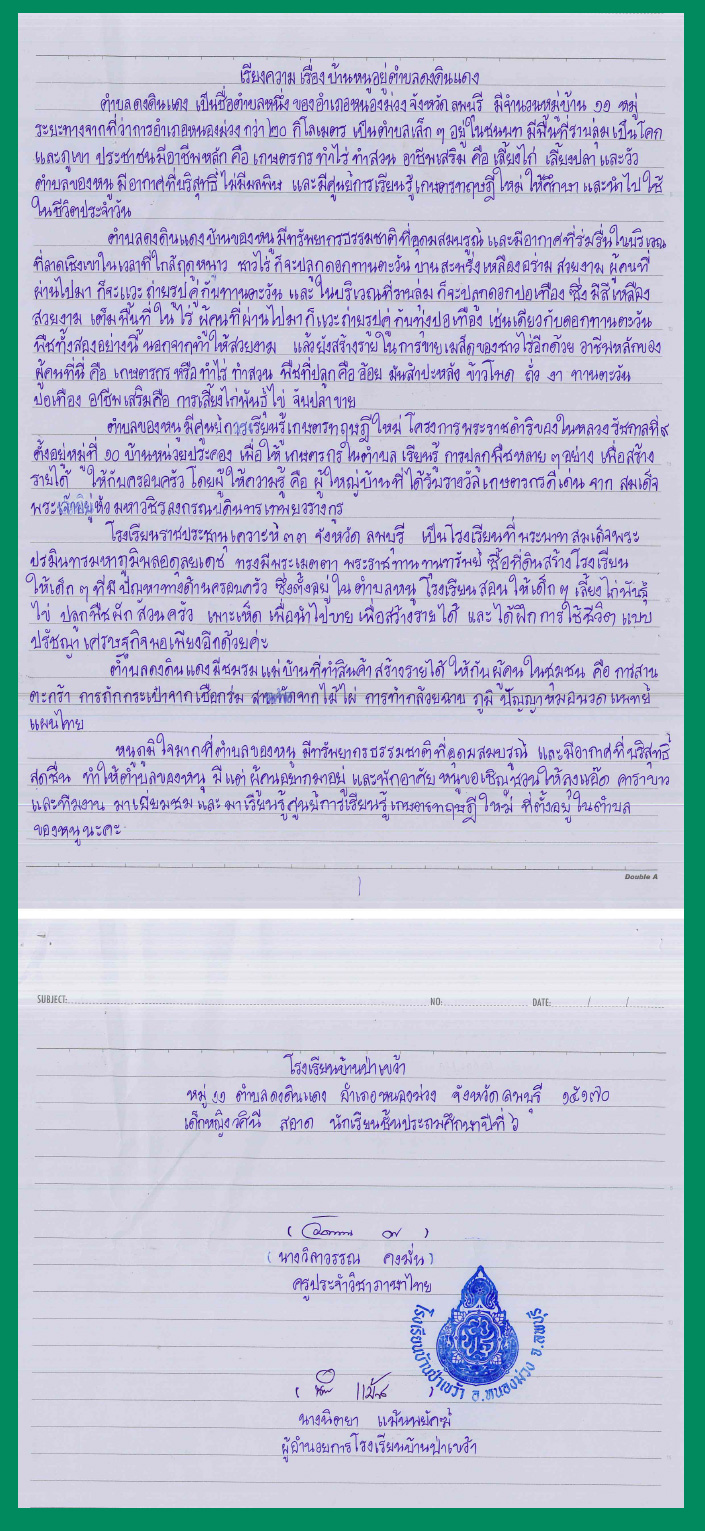 เรียงความ เรื่อง บ้านหนูอยู่ตำบลดงดินแดง
ตำบลดงดินแดง เป็นชื่อตำบลหนึ่ง ของอำเภอหนองม่วง จังหวัด ลพบุรี มีจำนวนหมู่บ้าน ๑๑ หมู่
ระยะทางจากที่ว่าการอำเภอหนองม่วง กว่า ๒๐ กิโลเมตร เป็นตำบลเล็ก ๆ อยู่ในชนบท มีพื้นที่ราบลุ่ม เป็นโคก
และภูเขา ประชาชนมีอาชีพหลัก คือ เกษตรกร ทำไร่ ทำสวน อาชีพเสริม คือ เลี้ยงไก่ เลี้ยงปลา และวัว
ตำบลของหนู มีอากาศที่บริสุทธิ์ ไม่มีมลพิษ และมีศูนย์การเรียนรู้ เกษตรทฤษฎีใหม่ ให้ศึกษา และนำไปใช้
ในชีวิตประจำวัน
ตำบลดงดินแดงบ้านของหนู มีทรัพยากรธรรมชาติที่อุดมสมบรูณ์ และมีอากาศที่ร่มรื่นในบริเวณ
ที่ลาดเชิงเขาในเวลาที่ใกล้ฤดูหนาว ชาวไร่ ก็จะปลูกดอกทานตะวัน บานสะพรั่ง เหลืองอร่าม สวยงาม ผู้คนที่
ผ่านไปมา ก็จะแวะ ถ่ายรูปคู่ กับทานตะวัน และ ในบริเวณที่ราบลุ่ม ก็จะปลูกดอกปอเทือง ซึ่ง มีสีเหลือง
สวยงาม เต็มพื้นที่ ใน ไร่ ผู้คนที่ผ่านไปมาก็แวะถ่ายรูปคู่ กับทุ่งปอเทือง เช่นเดียวกับดอกทานตะวัน
พืชทั้งสองอย่างนี้ นอกจากทำให้สวยงาม แล้วยังสร้างรายได้ในการขายเมล็ดของชาวไร่อีกด้วย อาชีพหลักของ
ผู้คนที่นี่ คือ เกษตรกร หรือทำไร่ ทำสวน พืชที่ปลูกคือ อ้อย มันสำปะหลัง ข้าวโพด ถั่ว งา ทานตะวัน
ปอเทือง อาชีพเสริมคือ การเลี้ยงไก่พันธุ์ไข่ จับปลาขาย
ตำบลของหนู มีศูนย์การเรียนรู้ เกษตรทฤษฎีใหม่ โครงการพระราชดำริของในหลวง รัชกาลที่๙
ตั้งอยู่หมู่ที่ ๑๐ บ้านหน่วยประคอง เพื่อให้ เกษตรกร ในตำบล เรียนรู้ การปลูกพืชหลาย ๆ อย่าง เพื่อสร้าง
รายได้ ให้กับครอบครัว โดยผู้ให้ความรู้ คือ ผู้ใหญ่บ้านที่ได้รับรางวัลเกษตรกรดีเด่น จาก สมเด็จ
พระเจ้าอยู่หัว มหาวชิราลงกรณบดินทรเทพยวรางกูร
โรงเรียนราชประชานุเคราะห์ ๓๓ จังหวัด ลพบุรี เป็นโรงเรียนที่ พระบาทสมเด็จพระ
ปรมินทรมหาภูมิพลอดุลยเดช ทรงมีพระเมตตา พระราชทานทุนทรัพย์ ซื้อที่ดินสร้างโรงเรียน
ให้เด็ก ๆ ที่มีปัญหาทางด้านครอบครัว ซึ่งตั้งอยู่ ใน ตำบลหนู โรงเรียนสอน ให้เด็ก ๆ เลี้ยงไก่พันธุ์
ไข่ ปลูกพืชผักสวนครัว เพาะเห็ด เพื่อนำไปขาย เพื่อสร้างรายได้ และได้ฝึก การใช้ชีวิต แบบ
ปรัชญา เศรษฐกิจพอเพียงอีกด้วยค่ะ
ตำบลดงดินแดง มีชมรมแม่บ้านที่ทำสินค้า สร้างรายได้ ให้กับ ผู้คน ในชุมชน คือ การสาน
ตะกร้า การถักกระเป๋าจากเชือกร่ม จากไม้ไผ่ การทำกล้วยฉาบ ภูมิ ปัญญา หมอนวด แพทย์
แผนไทย
หนูภูมิใจมากที่ตำบลของหนู มีทรัพยากรธรรมชาติที่อุดมสมบรูณ์ และมีอากาศที่บริสุทธิ์
สดชื่น ทำให้ตำบลของหนู มีแต่ผู้คนอยากมาอยู่ และพักอาศัย หนูขอเชิญชวนให้ลุงแอ๊ด คาราบาว
และทีมงาน มาเยี่ยมชม และ มาเรียนรู้ ศูนย์การเรียนรู้ เกษตรทฤษฎี ใหม่ ที่ตั้งอยู่ในตำบล
ของหนูนะคะ
Double A
SUBJECT: NO: DATE: / /
โรงเรียนบ้านป่าเขว้า
หมู่ ๑๑ ตำบลดงดินแดง อำเภอหนองม่วง จังหวัด ลพบุรี ๑๕๑๗๐
เด็กหญิง วศินี สอาด นักเรียนชั้นประถมศึกษาปีที่ ๖
(นางวิลาวรรณ คงมั่น)
ครูประจำวิชาภาษาไทย
โรงเรียนบ้านป่าเขว้า อ.หนองม่วง จ.ลพบุรี
นางนิตยา แม้นพยัคฆ์
ผู้อำนวยการโรงเรียนบ้านป่าเขว้า